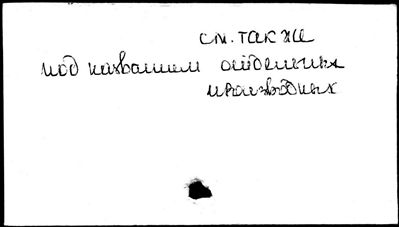 см. также
под названием отдельных
производных